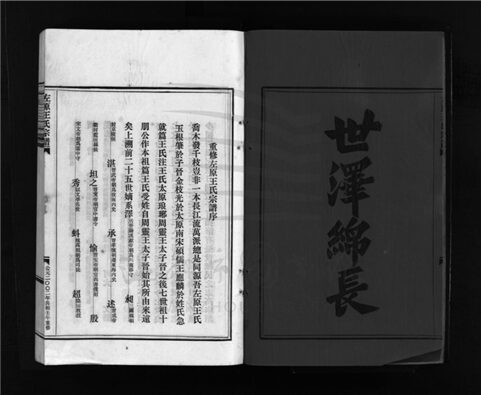 世澤綿長
重修左原王氏宗譜序
喬木發千枝豈非一本長江流萬派總是同源吾左原王氏
玉根肇於子晉金枝光於太原南宋碩儒王應麟於姓氏急
就篇王氏注王氏太原琅琊周靈王太子晉之後七世祖十
朋公作本祖篇王氏受姓自周靈王太子晉始其所由來遠
矣上溯前二十五世嫡系澤 昶
湛 承 述
坦之 愉 殷
秀 蚪 超
左原王氏宗譜
公元二〇〇二年